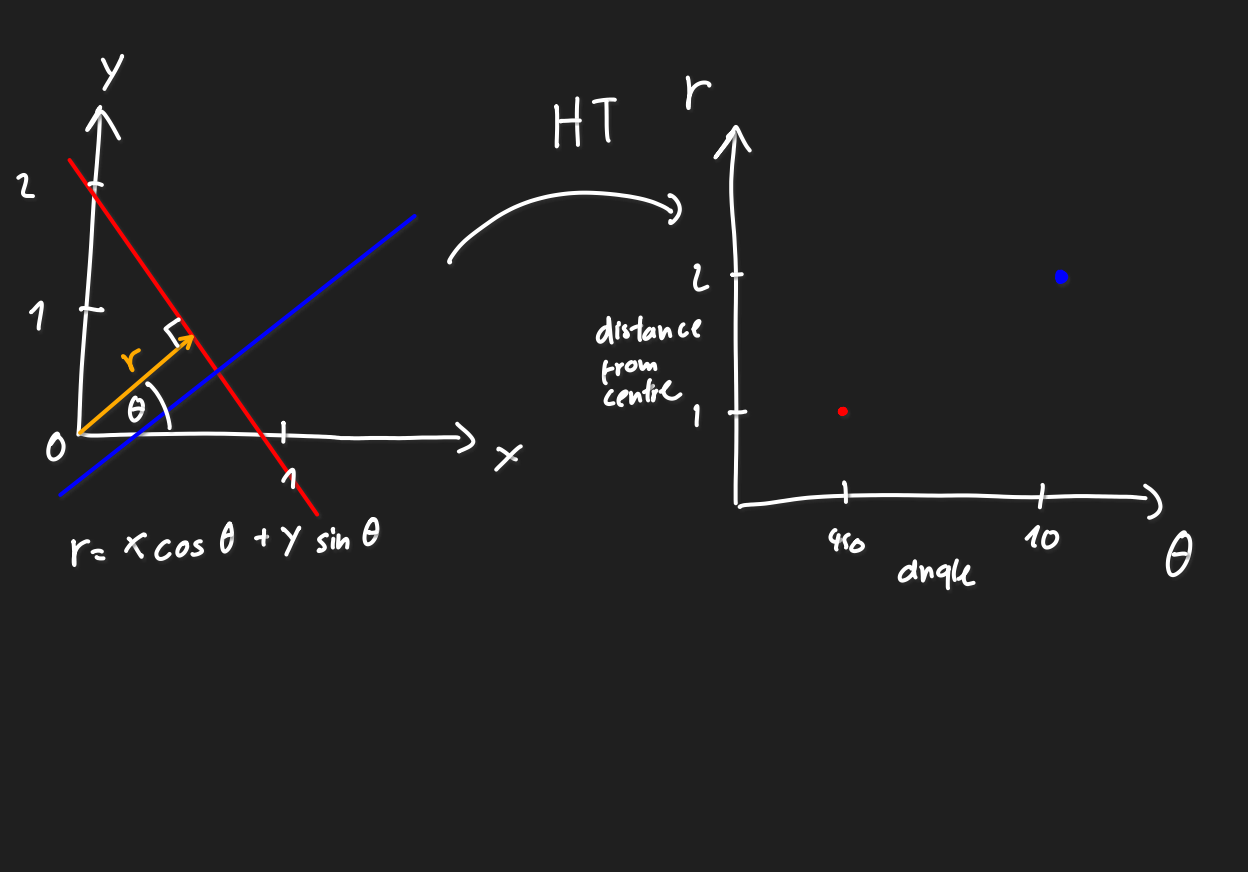 y
2
1
r
θ
0
1
x
r = x cos θ + y sin θ
HT
r
2
distance
from
centre
1
10
angle
θ